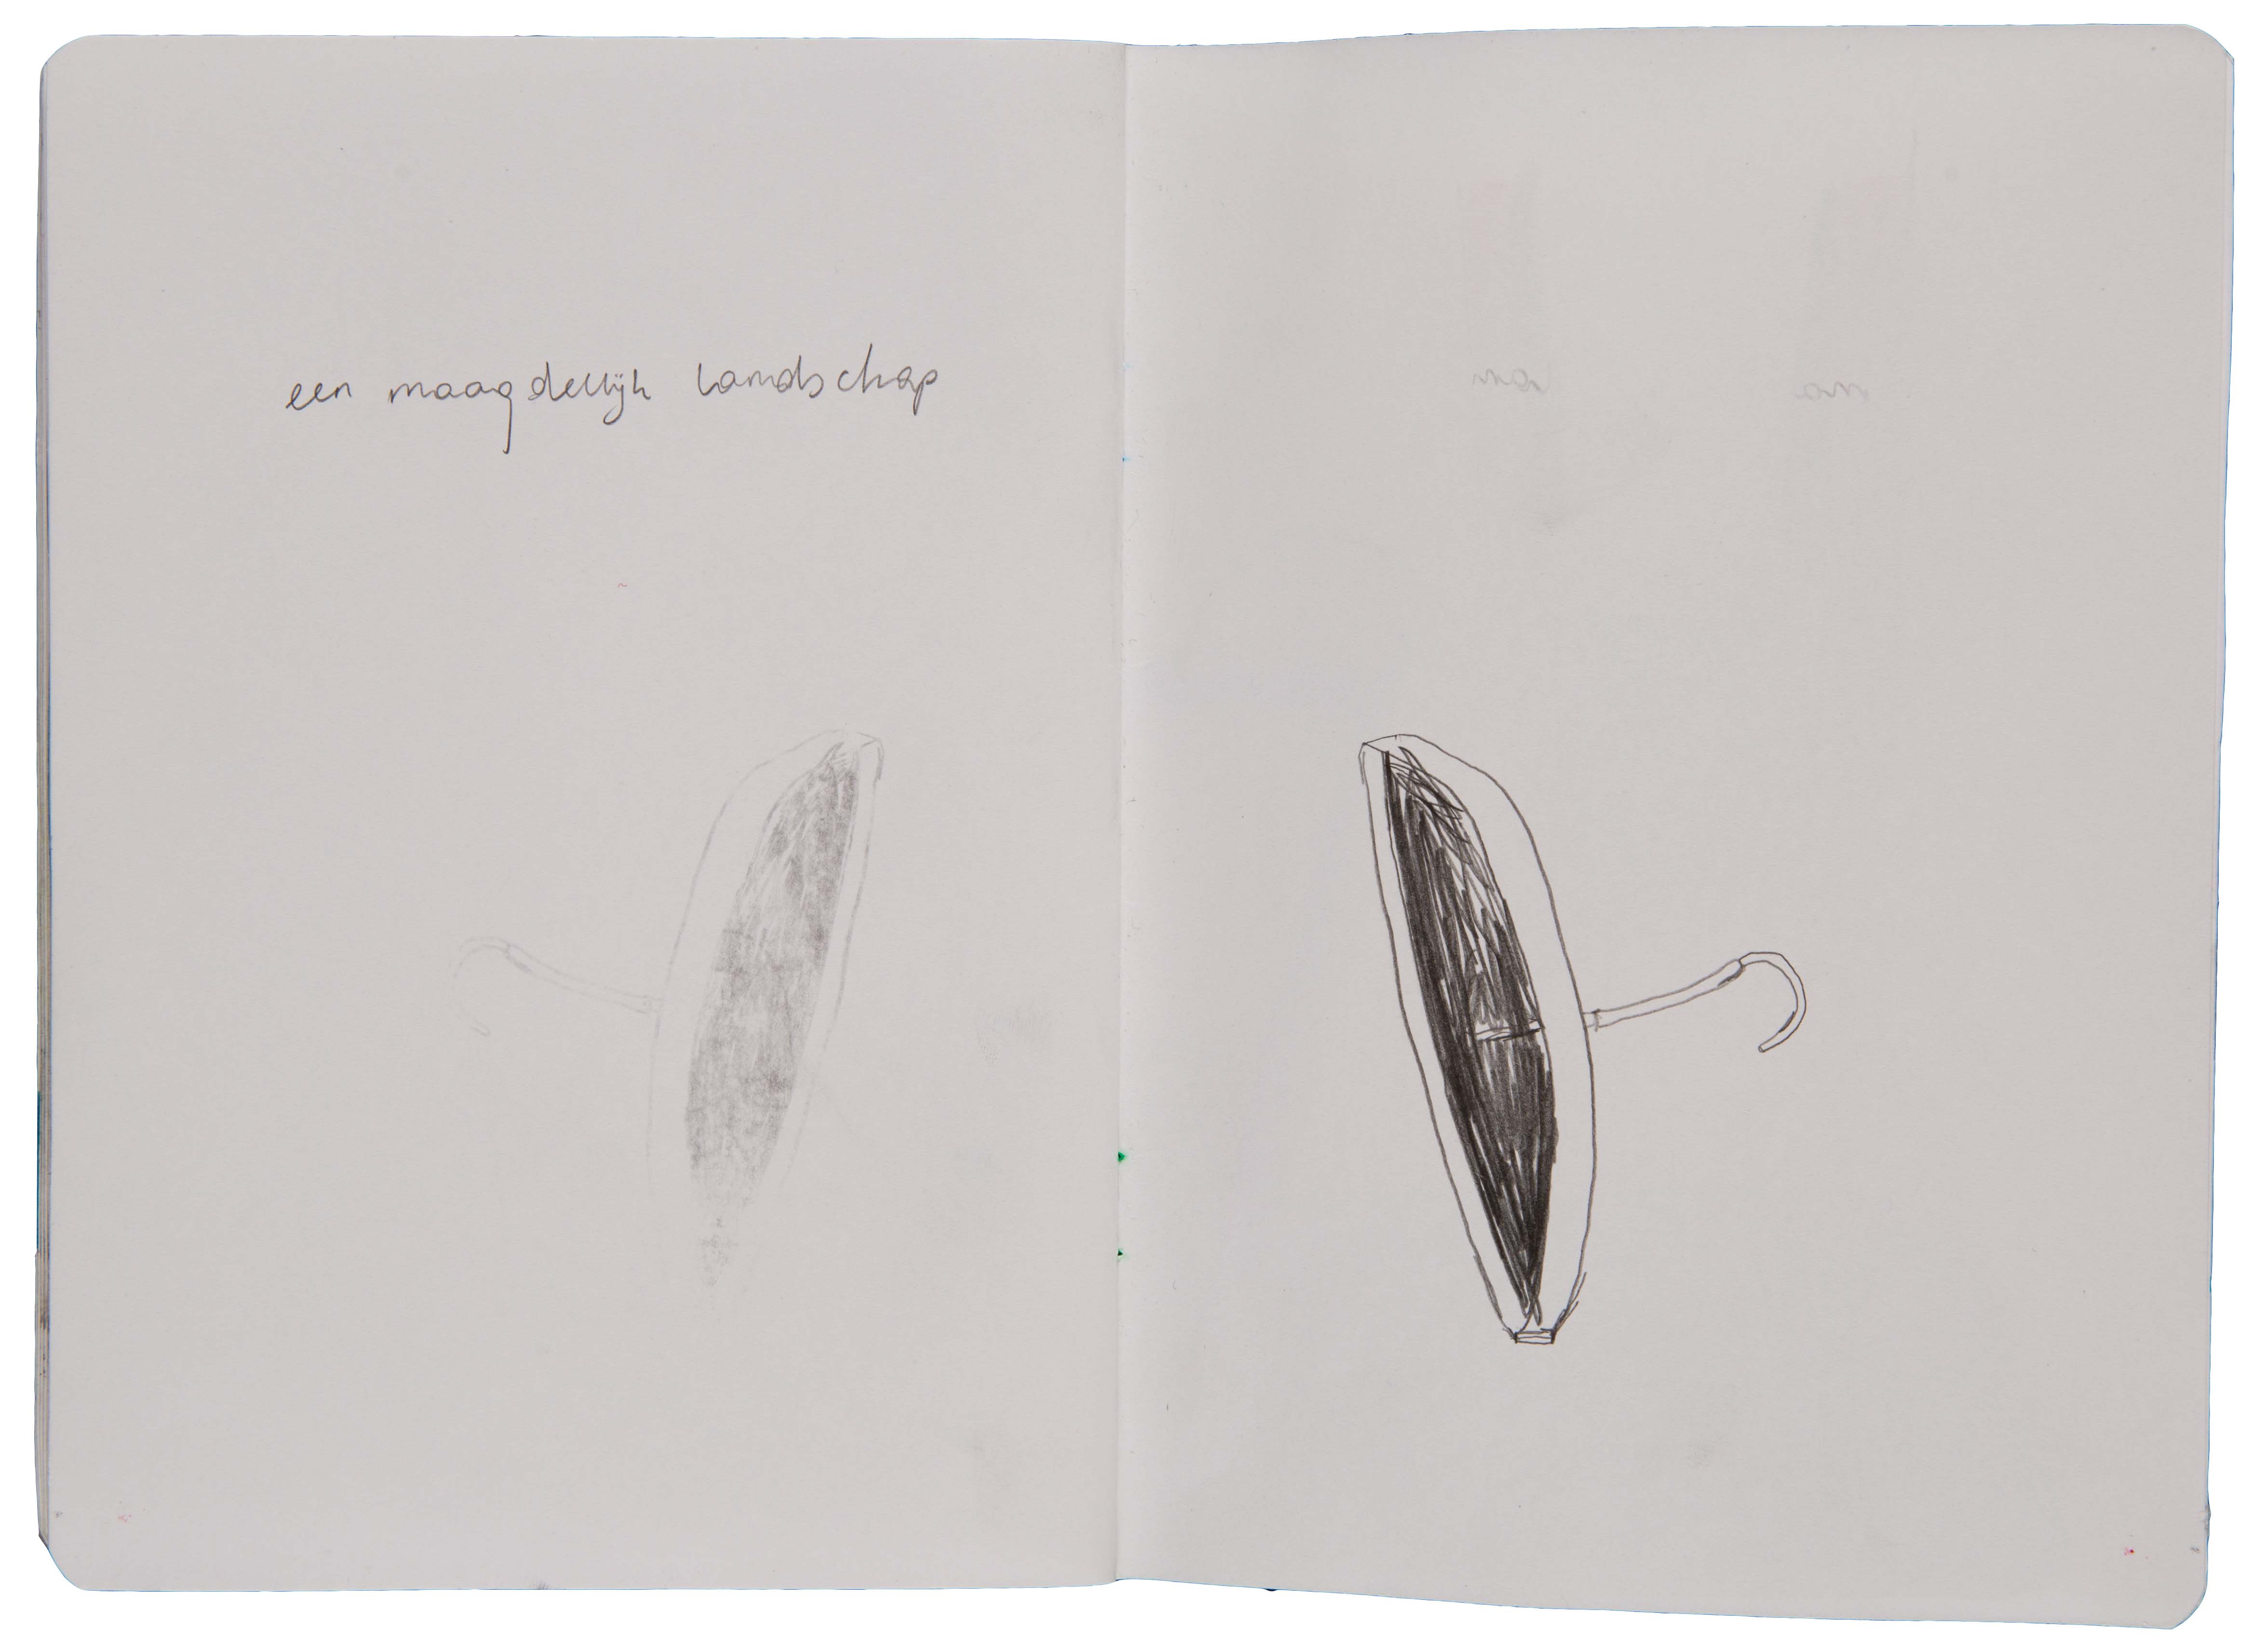 een maagdelijk landschap